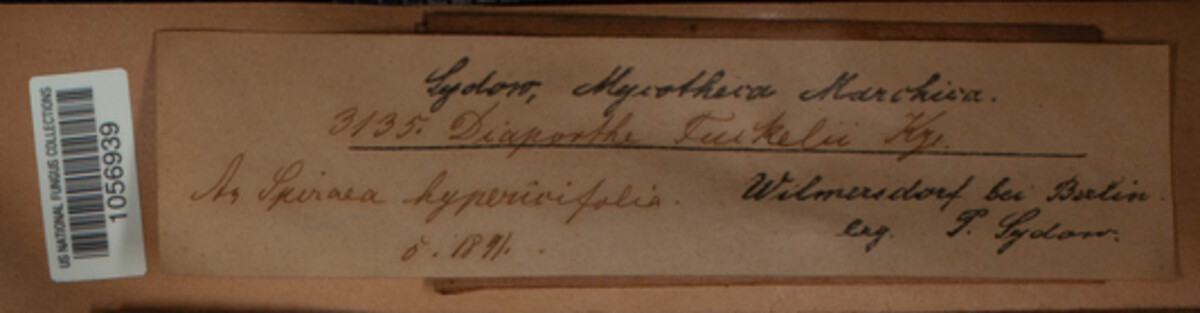 US NATIONAL FUNGUS COLLECTIONS
1056939
Sydow, Mycotheca Marchica.
3135. Diaporthe Fuckelii Kze.
An Spiraea hypericifolia.
5. 1891.
Wilmersdorf bei Berlin.
leg. P. Sydow.